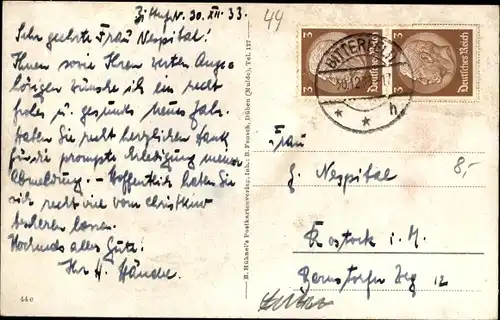 Bitterf. 30. XII. 33.
Sehr geehrte Frau Nespital!
Ihnen sowie Ihren werten Ange-
hörigen wünsche ich ein recht
frohes u. gesundes neues Jahr.
Haben Sie recht herzlichen Dank
für die prompte Erledigung meiner
Abmeldung. – Hoffentlich haben Sie
sich recht viel vom Christkind
bescheren lassen.
Nochmals alles Gute!
Ihr H.
440
B. Hühnel's Postkartenverlag, Inh.: B. Fensch, Düben (Mulde), Tel. 177
44
3 Deutsches Reich
3 Deutsches Reich
BITTERFELD
30.12
* * h
Frau
Nespital
8,-
Rostock i. M.
Bernstorfer Weg 12